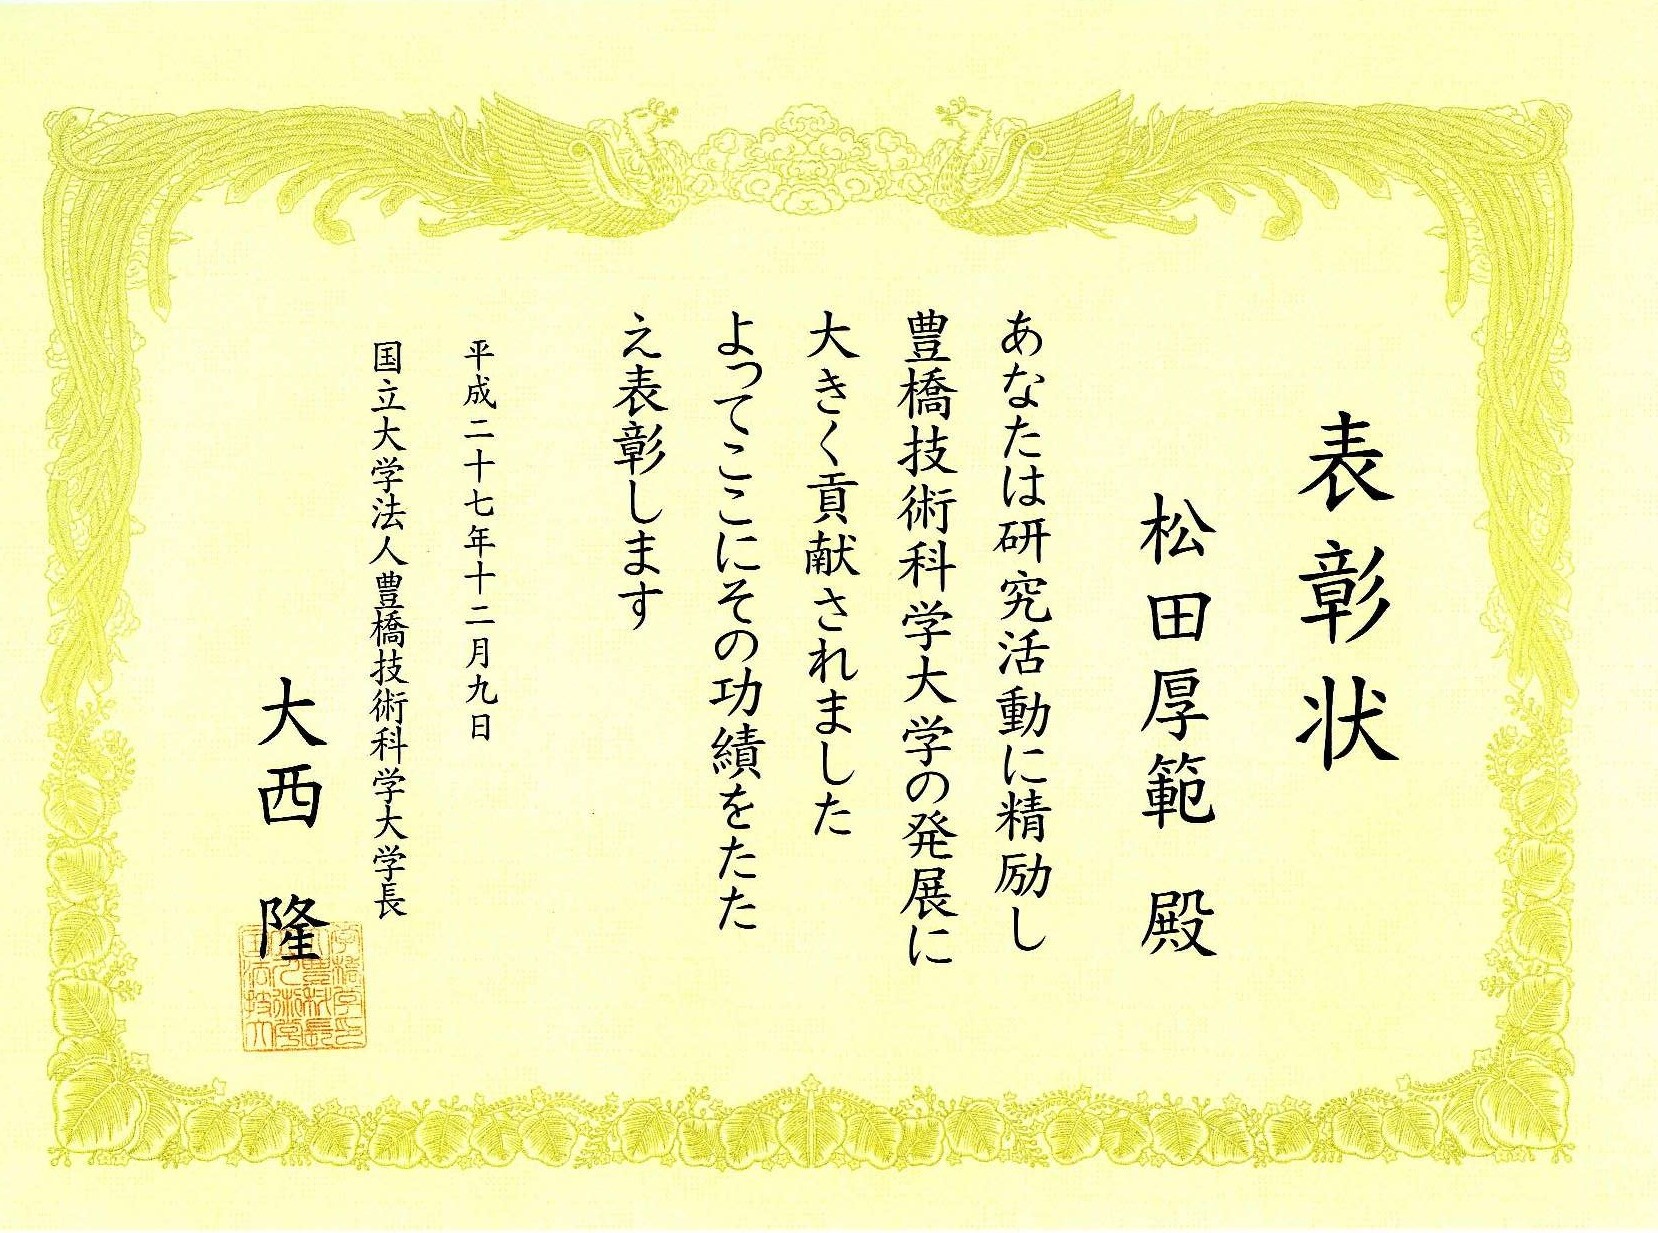 表彰状
松田厚範 殿
あなたは研究活動に精励し
豊橋技術科学大学の発展に
大きく貢献されました
よってここにその功績をたた
え表彰します
平成二十七年十二月九日
国立大学法人豊橋技術科学大学長
大西 隆